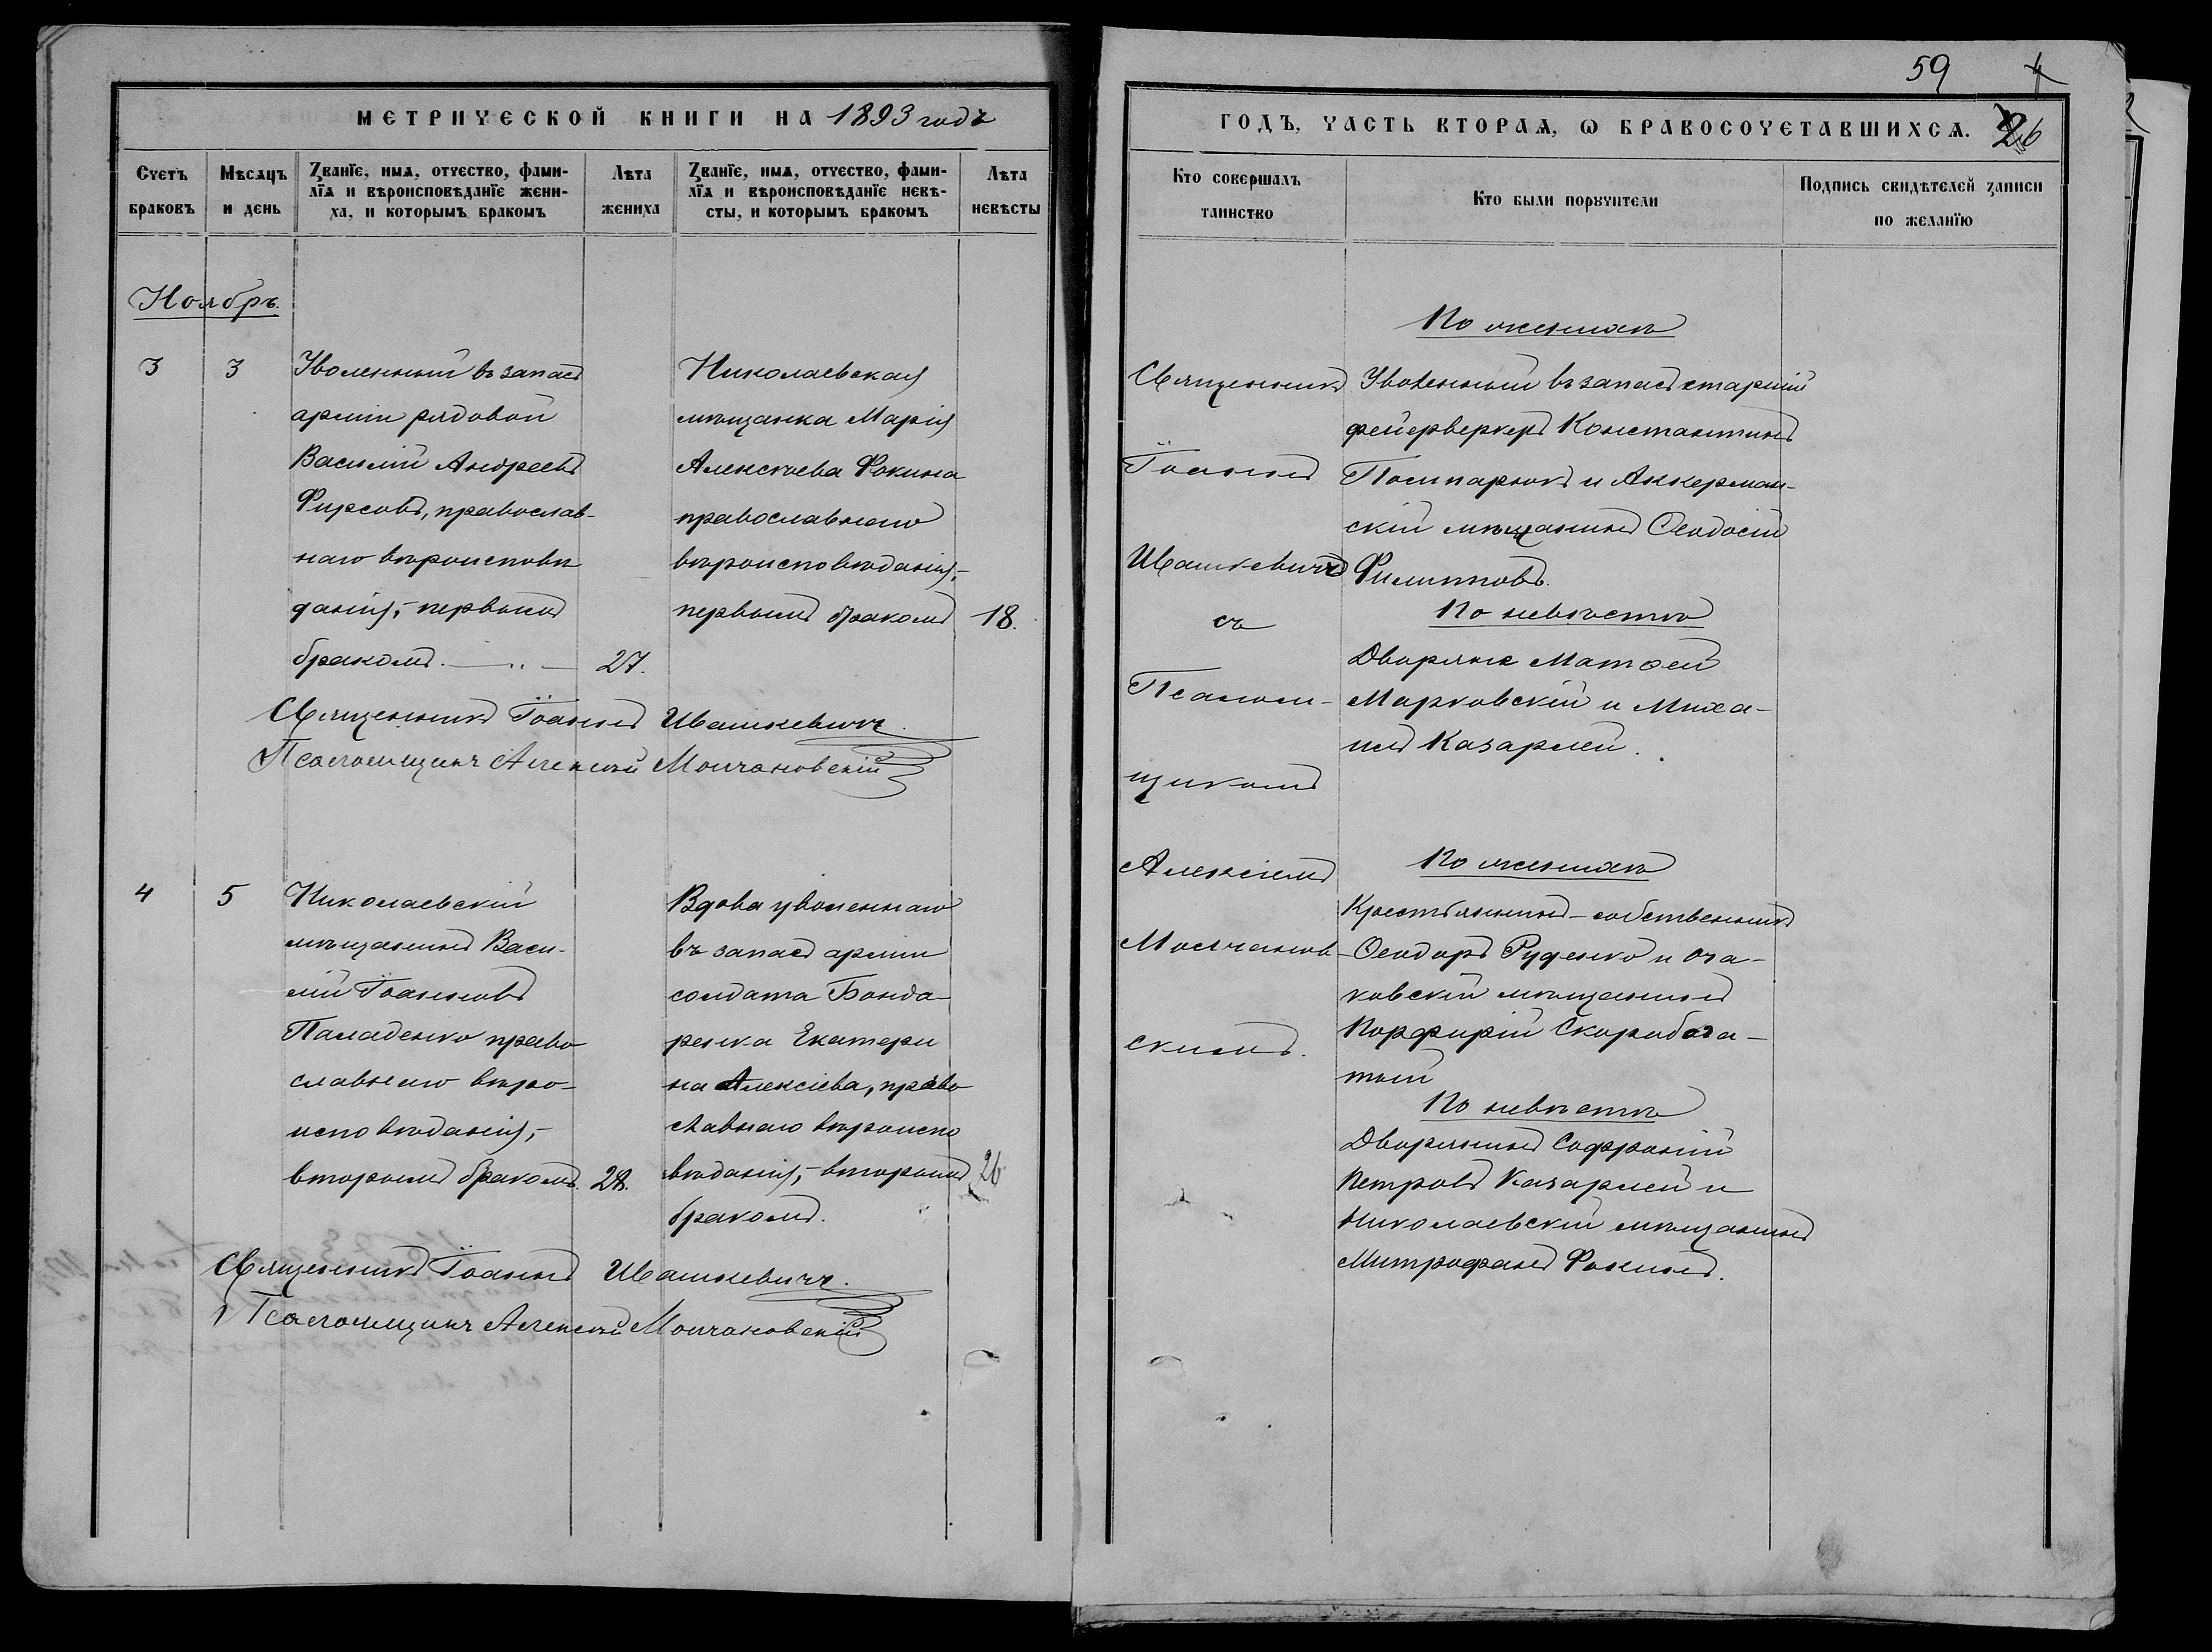 МЕТРИЧЕСКОЙ КНИГИ НА 1893 годъ
Счетъ браковъ
Мѣсяцъ и день
Званїе, имя, отчество, фами-
лїя и вѣроисповѣданїе жени-
ха, и которымъ бракомъ
Лѣта жениха
Званїе, имя, отчество, фами-
лїя и вѣроисповѣданїе невѣ-
сты, и которымъ бракомъ
Лѣта невѣсты
Ноябрь.
3
3
Уволенный въ запасъ
арміи рядовой
Василій Андреевъ
Фирсовъ, православ-
наго вѣроисповѣ
данія, - первымъ
бракомъ.
27.
Николаевская
мѣщанка Марія
Алексѣева Фокина
православнаго
вѣроисповѣданія, -
первымъ бракомъ
18.
Священникъ Іоаннъ Ивашкевичъ.
Псаломщикъ Алексій Молчановскій
4
5
Николаевскій
мѣщанинъ Васи-
лій Іоанновъ
Паладенко право
славнаго вѣро-
исповѣданія, -
вторымъ бракомъ.
28.
Вдова уволеннаго
въ запасъ арміи
солдата Бонда-
ренка Екатери
на Алексіева, право
славнаго вѣроиспо
вѣданія, - вторымъ
бракомъ.
26
Священникъ Іоаннъ Ивашкевичъ.
Псаломщикъ Алексій Молчановскій
59
ГОДЪ, ЧАСТЬ ВТОРАЯ, Ѡ БРАКОСОЧЕТАВШИХСЯ.
26
Кто совершалъ
таинство
Кто были порꙋчители
Подпись свидѣтелей записи
по желанїю
Священникъ
Іоаннъ
Ивашкевичъ
съ
Псалом-
щикомъ
Алексіемъ
Молчанов-
скимъ.
По женихѣ
Уволенный въ запасъ старшій
фейерверкеръ Константинъ
Поштарюкъ и Аккерман-
скій мѣщанинъ Ѳеодосій
Филипповъ.
По невѣстѣ
Дворяне Матѳей
Марковскій и Миха-
илъ Казармей.
По женихѣ
Крестьянинъ-собственникъ
Ѳеодоръ Руденко и Оча-
ковскій мѣщанинъ
Порфирій Скоробога-
тый
По невѣстѣ
Дворянинъ Софроній
Петровъ Казармей и
Николаевскій мѣщанинъ
Митрофанъ Фокинъ.